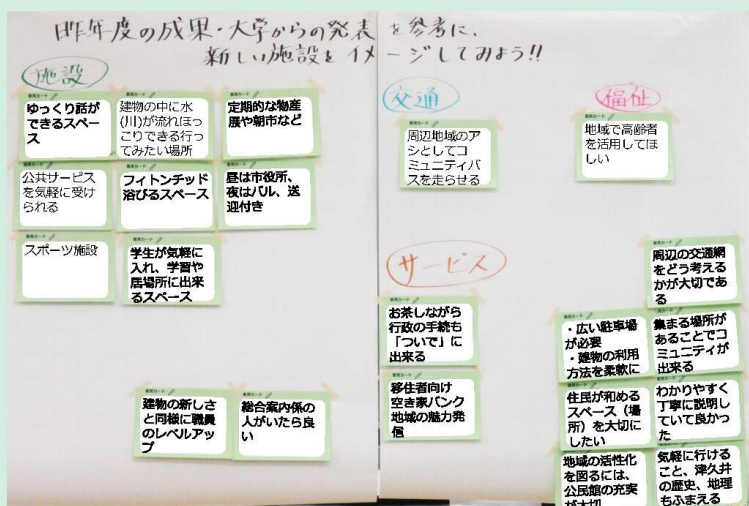 昨年度の成果・大学からの発表を参考に、
新しい施設をイメージしてみよう!!
施設
ゆっくり話が
できるスペー
ス
建物の中に水
(川)が流れほっ
こりできる行っ
てみたい場所
定期的な物産
展や朝市など
公共サービス
を気軽に受け
られる
フィトンチッド
浴びるスペース
昼は市役所、
夜はバル、送
迎付き
スポーツ施設
学生が気軽に
入れ、学習や
居場所に出来
るスペース
建物の新しさ
と同様に職員
のレベルアッ
プ
総合案内係の
人がいたら良
い
交通
周辺地域のア
シとしてコ
ミュニティバ
スを走らせる
福祉
地域で高齢者
を活用してほ
しい
サービス
お茶しながら
行政の手続も
「ついで」に
出来る
移住者向け
空き家バンク
地域の魅力発
信
周辺の交通網
をどう考える
かが大切であ
る
・広い駐車場
が必要
・建物の利用
方法を柔軟に
集まる場所が
あることでコ
ミュニティが
出来る
住民が和める
スペース（場
所）を大切に
したい
わかりやすく
丁寧に説明し
ていて良かっ
た
地域の活性化
を図るには、
公民館の充実
が大切
気軽に行ける
こと、津久井
の歴史、地理
もふまえる